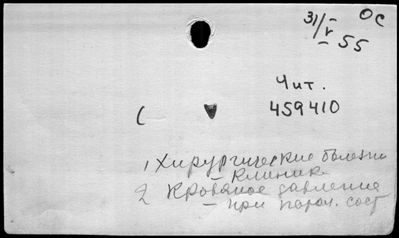 31/V 55
ОС
Чит.
459410
(
1 Хирургические болезни
– клиник.
2 Кровяное давление
– при патол. сост